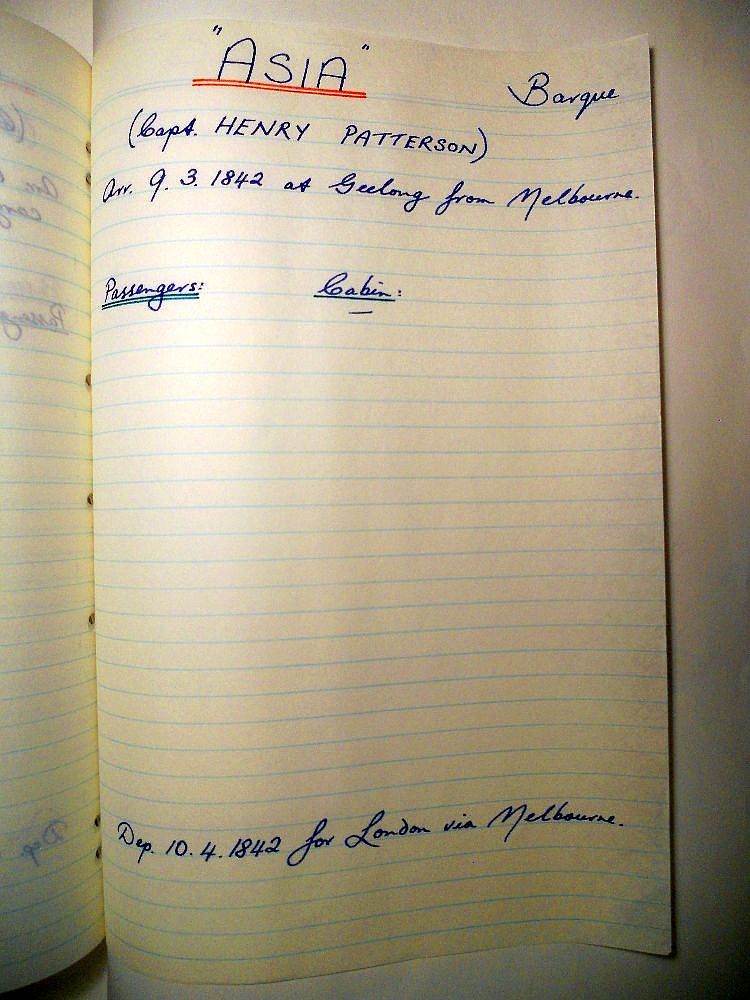 "ASIA" Barque
(Capt. HENRY PATTERSON)
Arr. 9.3.1842 at Geelong from Melbourne.
Passengers: Cabin:
—
Dep. 10.4.1842 for London via Melbourne.